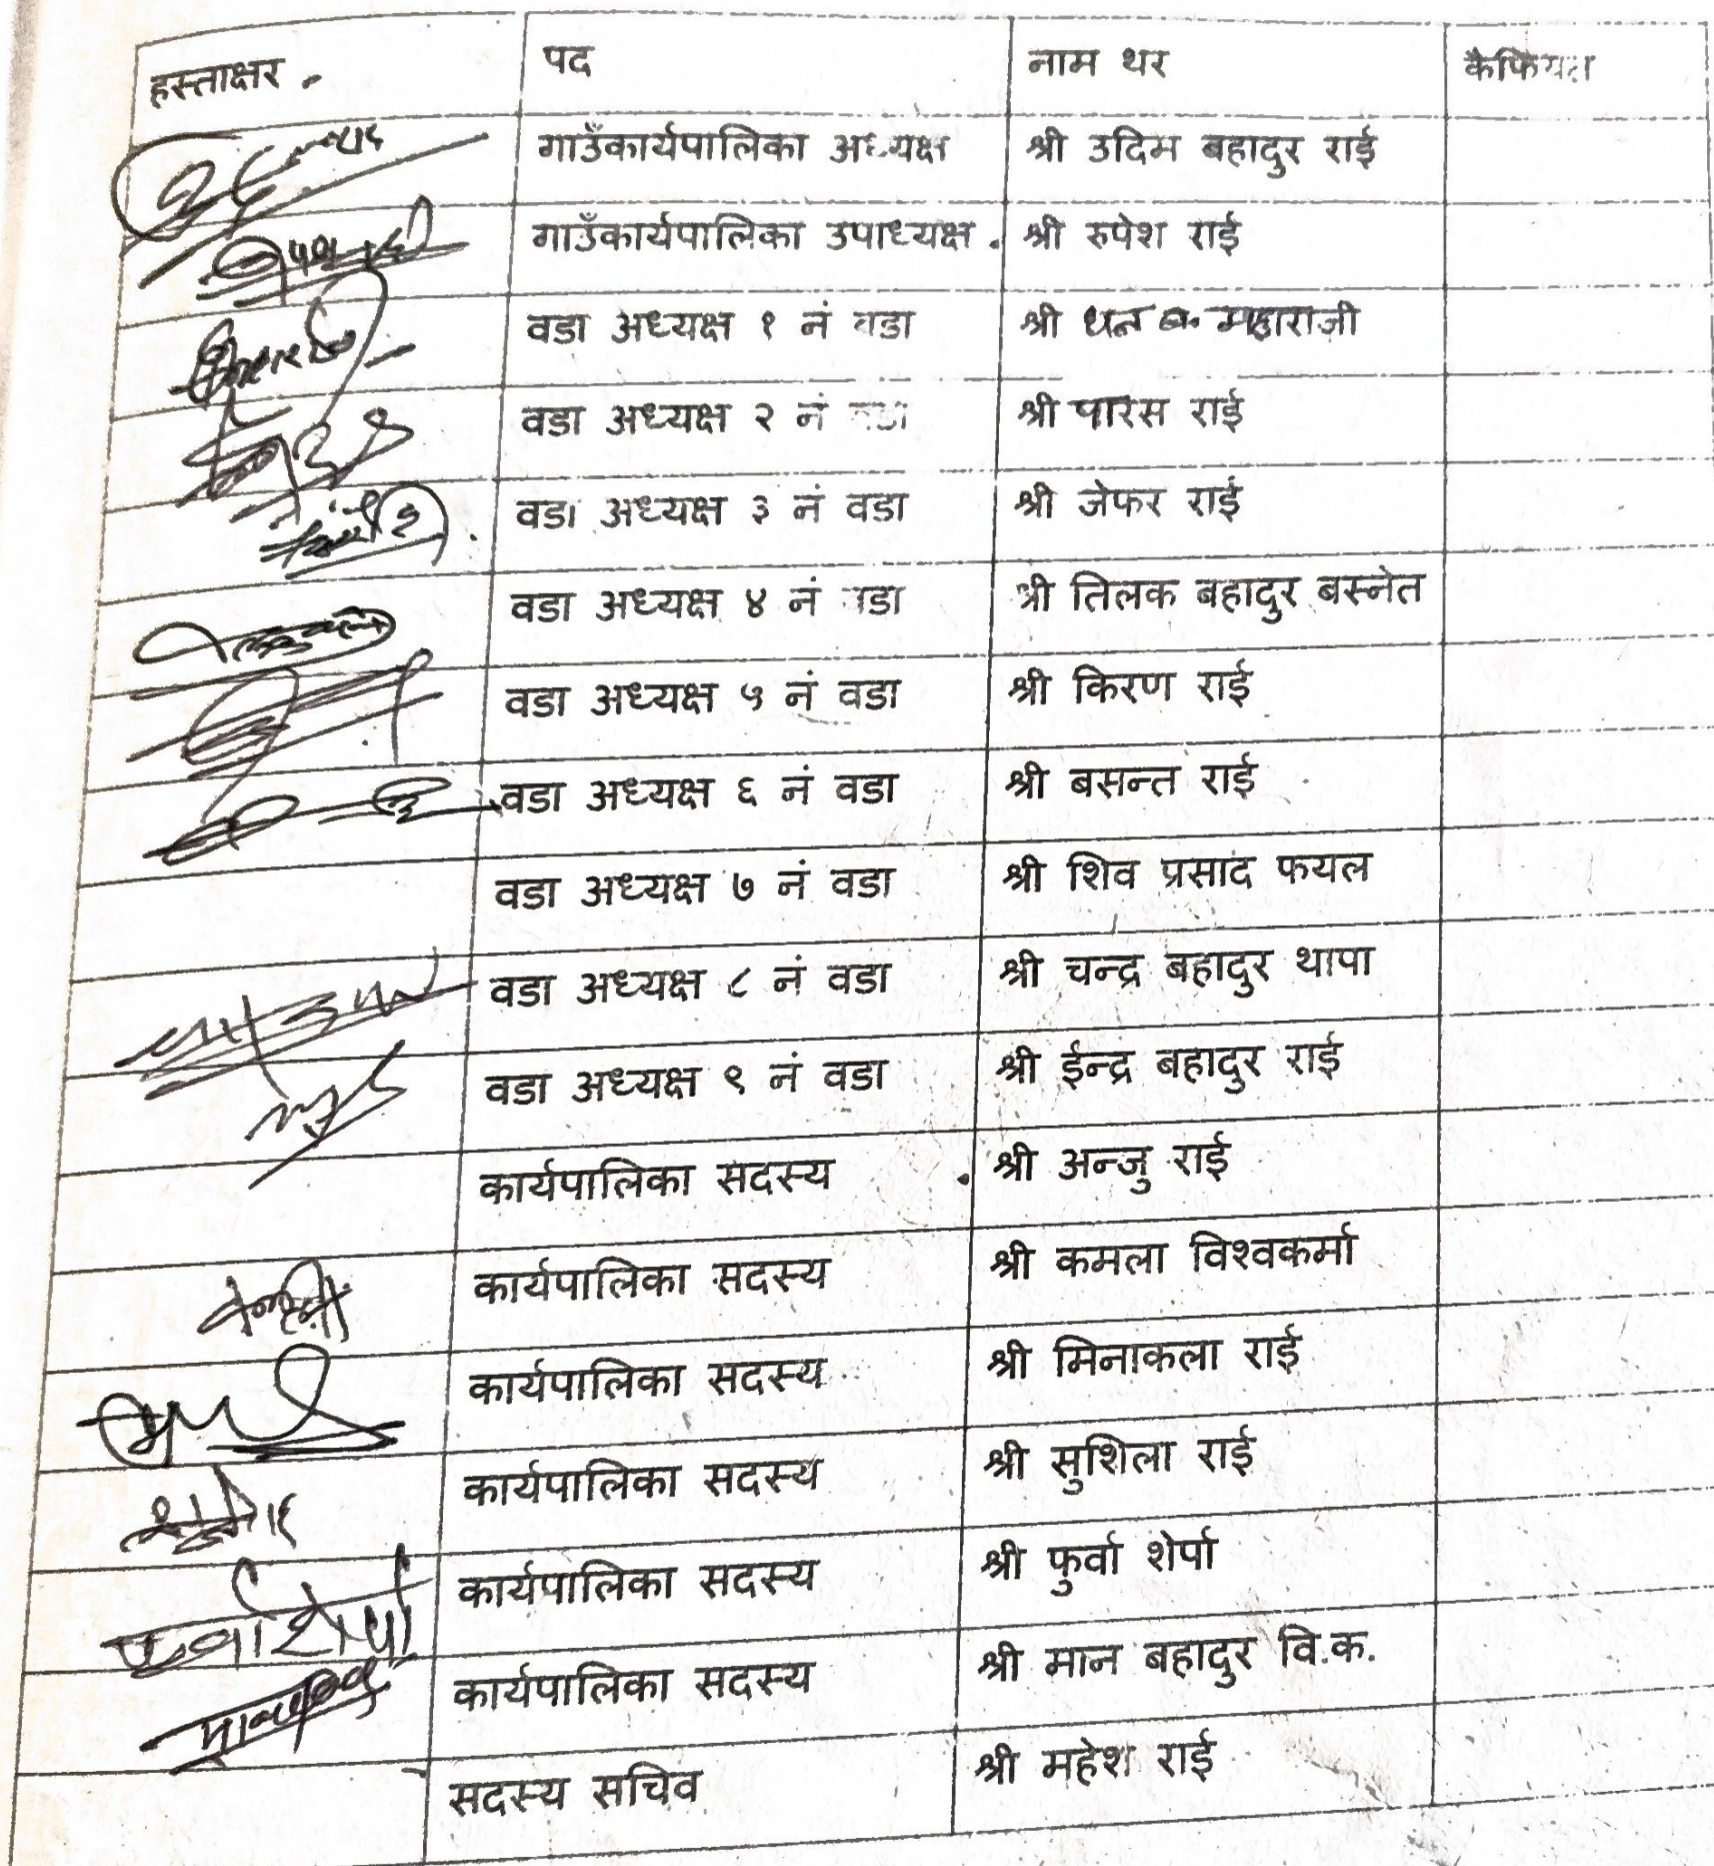 हस्ताक्षर पद नाम थर कैफियत
गाउँकार्यपालिका अध्यक्ष श्री उदिम बहादुर राई
गाउँकार्यपालिका उपाध्यक्ष श्री रुपेश राई
वडा अध्यक्ष १ नं वडा श्री धन ब. महाराजी
वडा अध्यक्ष २ नं वडा श्री पारस राई
वडा अध्यक्ष ३ नं वडा श्री जेफर राई
वडा अध्यक्ष ४ नं वडा श्री तिलक बहादुर बस्नेत
वडा अध्यक्ष ५ नं वडा श्री किरण राई
वडा अध्यक्ष ६ नं वडा श्री बसन्त राई
वडा अध्यक्ष ७ नं वडा श्री शिव प्रसाद फयल
वडा अध्यक्ष ८ नं वडा श्री चन्द्र बहादुर थापा
वडा अध्यक्ष ९ नं वडा श्री ईन्द्र बहादुर राई
कार्यपालिका सदस्य श्री अन्जु राई
कार्यपालिका सदस्य श्री कमला विश्वकर्मा
कार्यपालिका सदस्य श्री मिनाकला राई
कार्यपालिका सदस्य श्री सुशिला राई
कार्यपालिका सदस्य श्री फुर्वा शेर्पा
फुर्वा शेर्पा कार्यपालिका सदस्य श्री मान बहादुर वि.क.
सदस्य सचिव श्री महेश राई